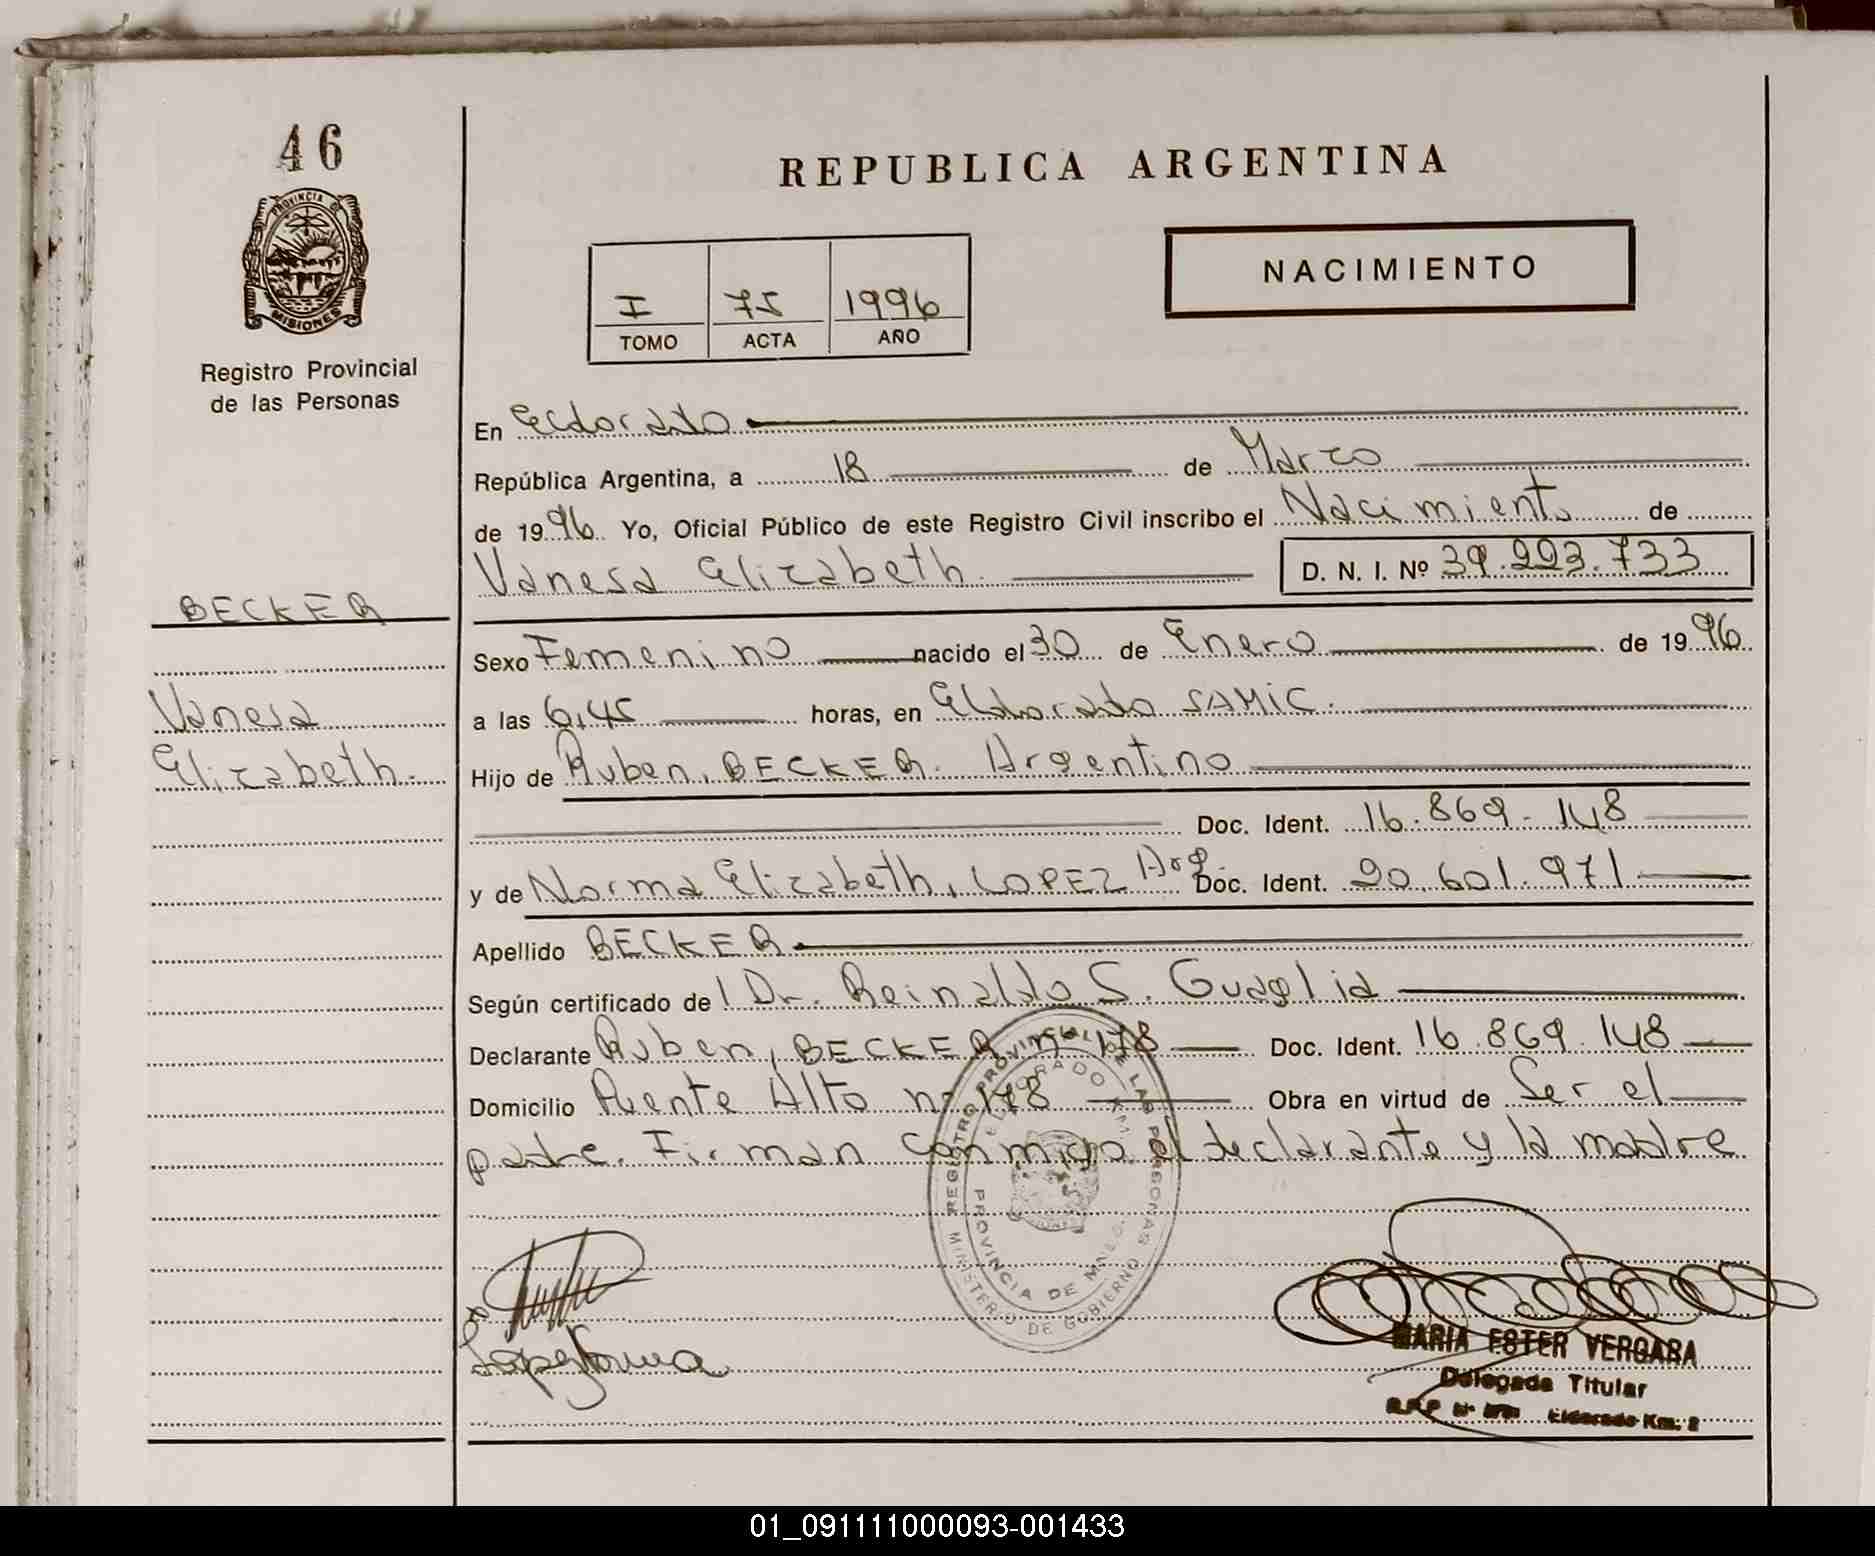 46
PROVINCIA DE
MISIONES
Registro Provincial
de las Personas
BECKER
Vanesa
Elizabeth.
REPUBLICA ARGENTINA
NACIMIENTO
I 75 1996
TOMO ACTA AÑO
En Eldorado
República Argentina, a 18 de Marzo
de 1996 Yo, Oficial Público de este Registro Civil inscribo el Nacimiento de
Vanesa Elizabeth. D. N. I. Nº 39.223.733
Sexo Femenino nacido el 30 de Enero de 1996
a las 6,45 horas, en Eldorado SAMIC.
Hijo de Ruben, BECKER. Argentino
Doc. Ident. 16.869.148
y de Norma Elizabeth, LOPEZ Arg. Doc. Ident. 20.601.971
Apellido BECKER
Según certificado del Dr. Reinaldo S. Guaglia
Declarante Ruben, BECKER nº 178 Doc. Ident. 16.869.148
Domicilio Puente Alto nº 178 Obra en virtud de Ser el
padre. Firman conmigo el declarante y la madre
REGISTRO PROVINCIAL DE LAS PERSONAS
MINISTERIO DE GOBIERNO
ELDORADO KM
PROVINCIA DE MNES.
Lopez Norma
MARIA ESTER VERGARA
Delegada Titular
R.P.P. Nº Eldorado Km. 2
01_091111000093-001433